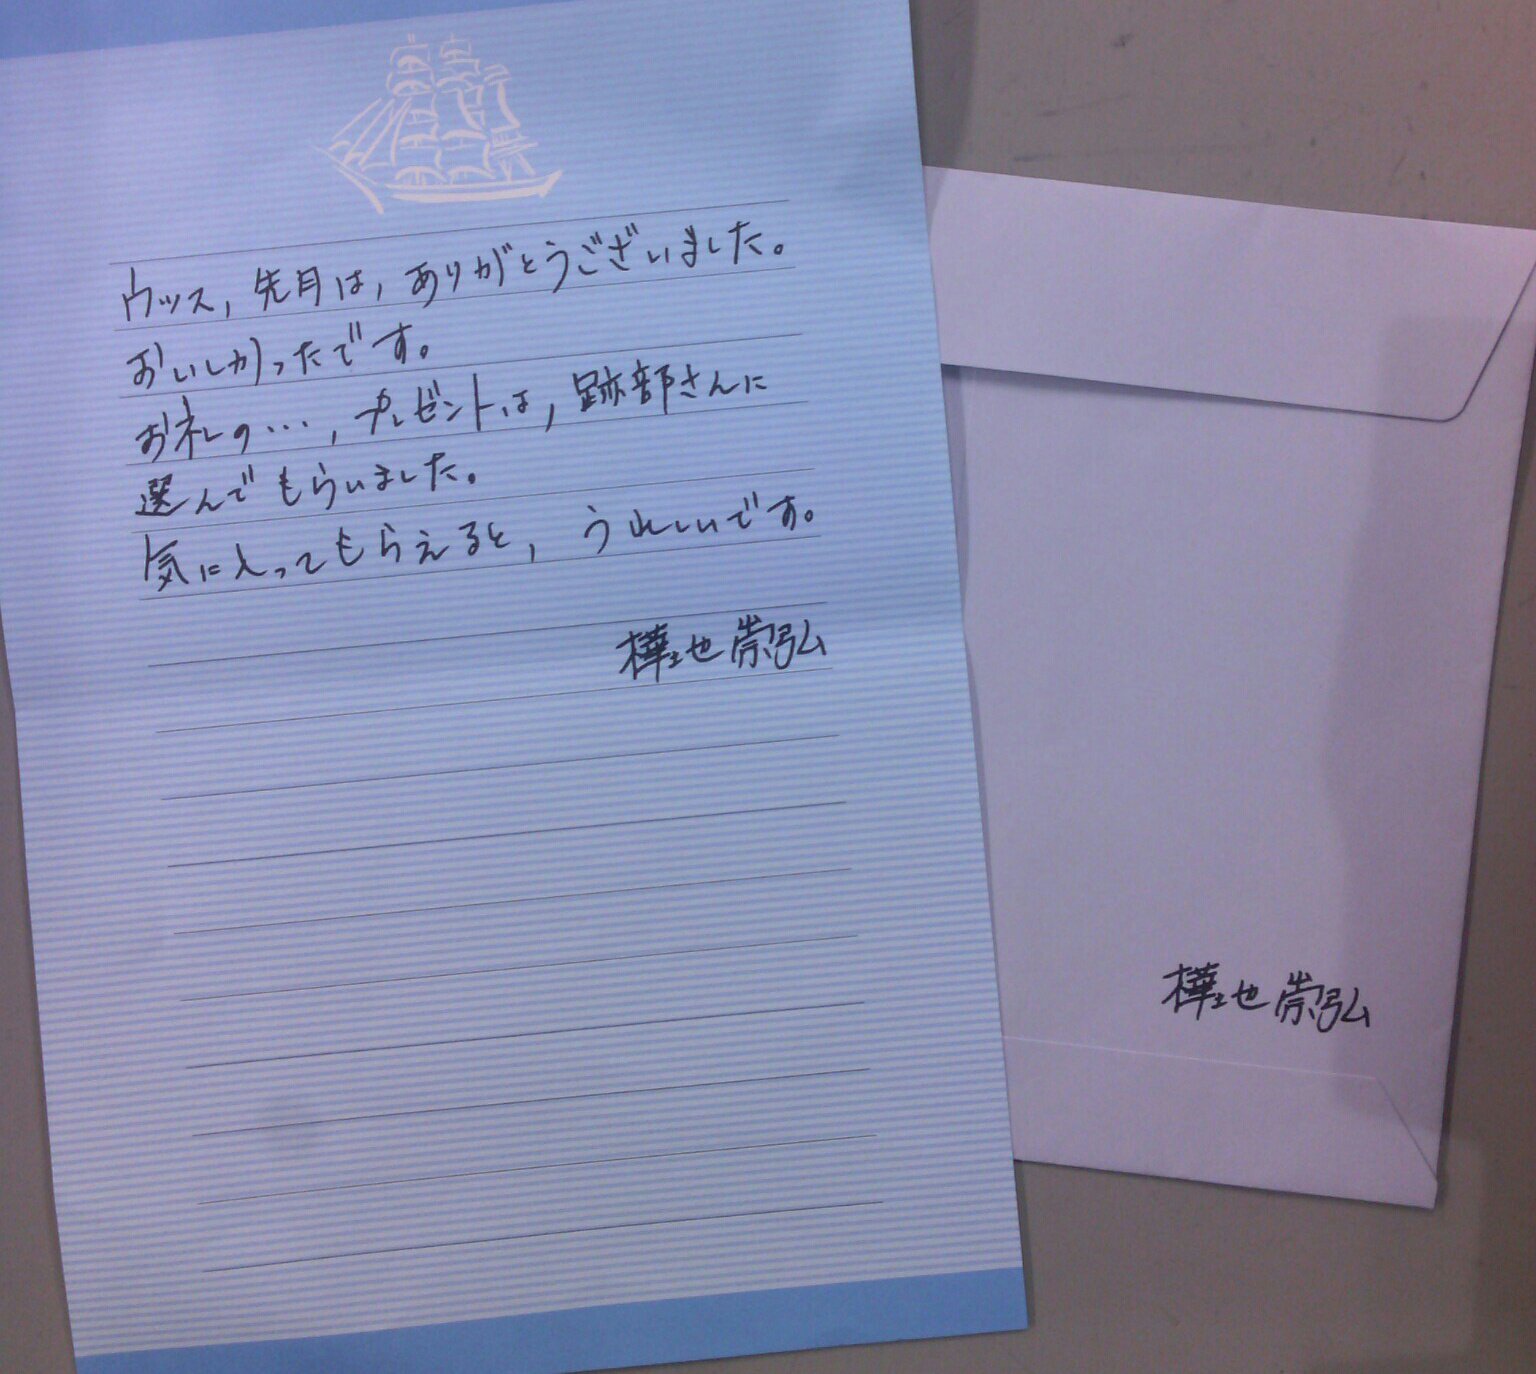 ウッス，先月は，ありがとうございました。
おいしかったです。
お礼の…，プレゼントは，跡部さんに
選んでもらいました。
気に入ってもらえると，うれしいです。
樺地崇弘
樺地崇弘